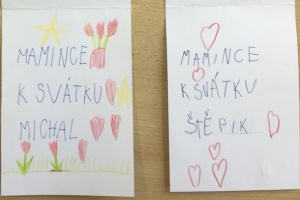 MAMINCE
K SVÁTKU
MICHAL
MAMINCE
K SVÁTKU
ŠTĚPIK